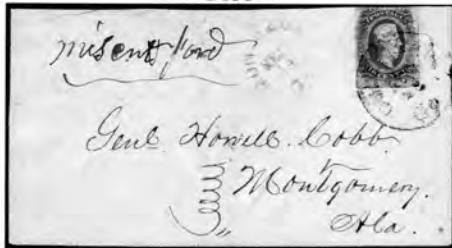 missent & ford
Genl. Howell. Cobb
Montgomery.
Ala.